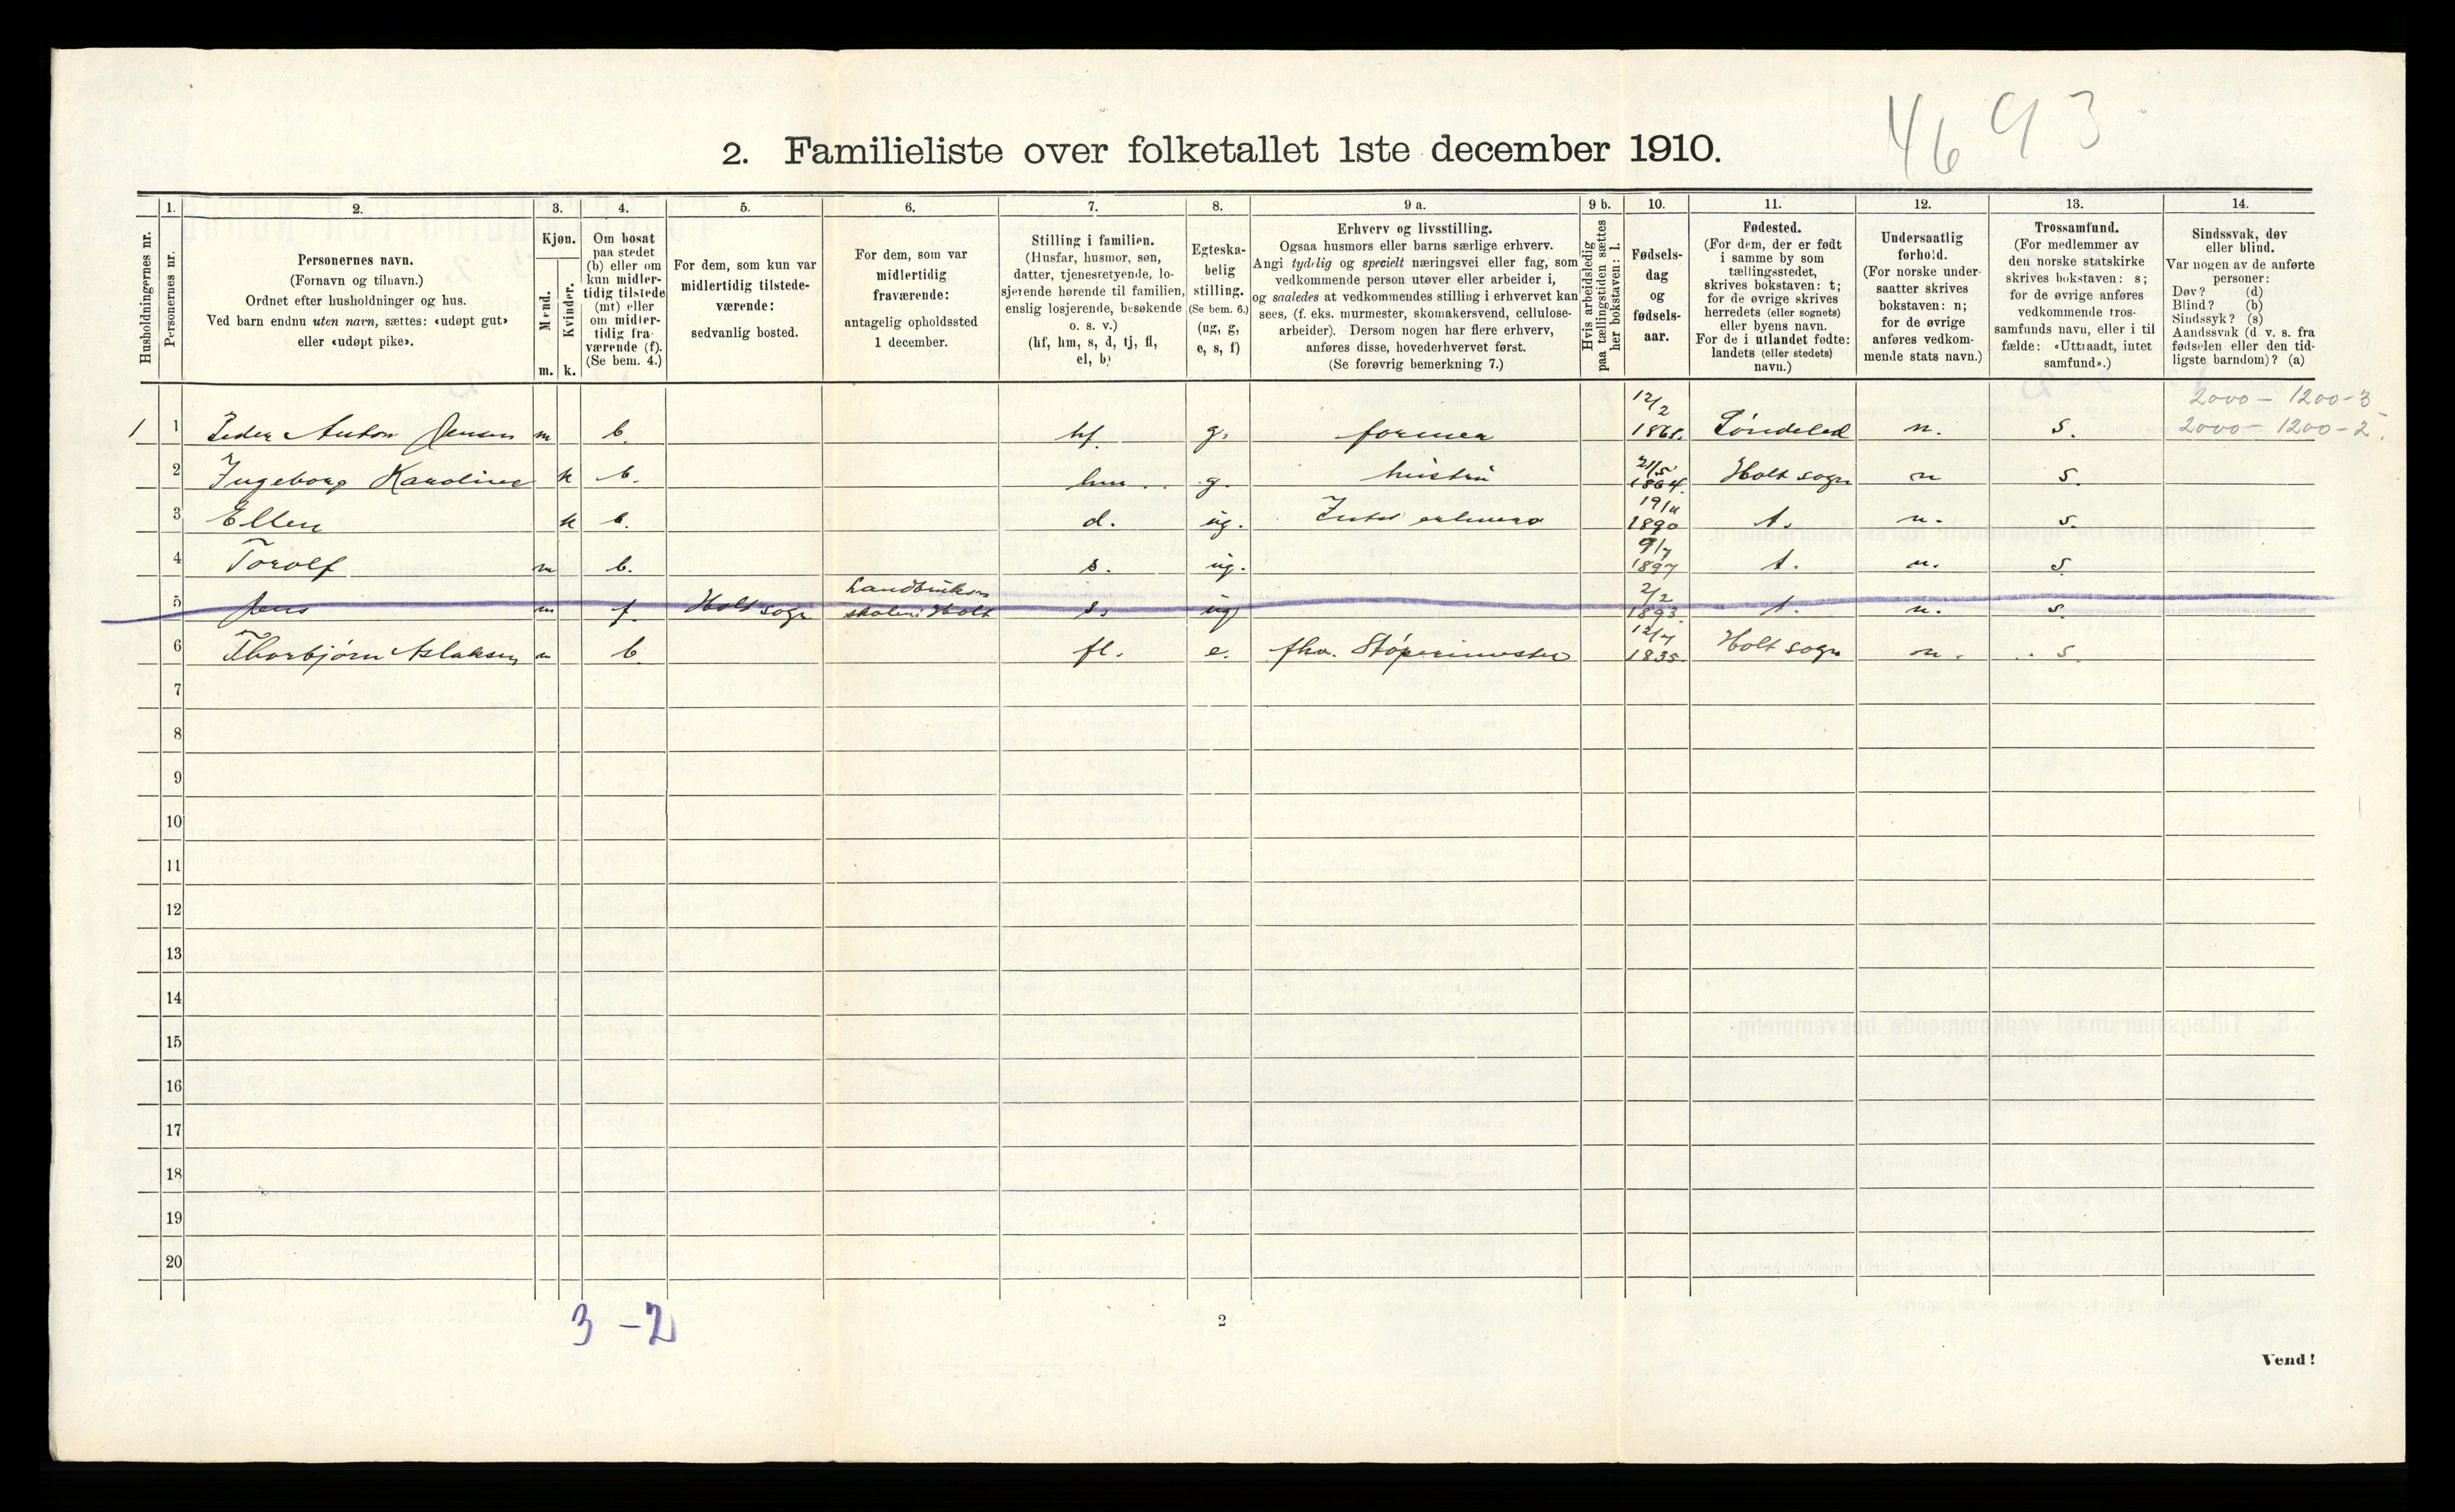 4693
2. Familieliste over folketallet 1ste december 1910.
Husholdningernes nr.
1.
Personernes nr.
2.
Personernes navn.
(Fornavn og tilnavn.)
Ordnet efter husholdninger og hus.
Ved barn endnu uten navn, sættes: «udøpt gut»
eller «udøpt pike».
3.
Kjøn.
Mænd.
Kvinder.
m. k.
4.
Om bosat
paa stedet
(b) eller om
kun midler-
tidig tilstede
(mt) eller
om midler-
tidig fra-
værende (f).
(Se bem. 4.)
5.
For dem, som kun var
midlertidig tilstede-
værende:
sedvanlig bosted.
6.
For dem, som var
midlertidig
fraværende:
antagelig opholdssted
1 december.
7.
Stilling i familien.
(Husfar, husmor, søn,
datter, tjenestetyende, lo-
sjerende hørende til familien,
enslig losjerende, besøkende
o. s. v.)
(hf, hm, s, d, tj, fl,
el, b)
8.
Egteska-
belig
stilling.
(Se bem. 6.)
(ug, g,
e, s, f)
9 a.
Erhverv og livsstilling.
Ogsaa husmors eller barns særlige erhverv.
Angi tydelig og specielt næringsvei eller fag, som
vedkommende person utøver eller arbeider i,
og saaledes at vedkommendes stilling i erhvervet kan
sees, (f. eks. murmester, skomakersvend, cellulose-
arbeider). Dersom nogen har flere erhverv,
anføres disse, hovederhvervet først.
(Se forøvrig bemerkning 7.)
9 b.
Hvis arbeidsledig
paa tællingstiden sættes
her bokstaven: l.
10.
Fødsels-
dag
og
fødsels-
aar.
11.
Fødested.
(For dem, der er født
i samme by som
tællingsstedet,
skrives bokstaven: t;
for de øvrige skrives
herredets (eller sognets)
eller byens navn.
For de i utlandet fødte:
landets (eller stedets)
navn.)
12.
Undersaatlig
forhold.
(For norske under-
saatter skrives
bokstaven: n;
for de øvrige
anføres vedkom-
mende stats navn.)
13.
Trossamfund.
(For medlemmer av
den norske statskirke
skrives bokstaven: s;
for de øvrige anføres
vedkommende tros-
samfunds navn, eller i til
fælde: «Uttraadt, intet
samfund».)
14.
Sindssvak, døv
eller blind.
Var nogen av de anførte
personer:
Døv? (d)
Blind? (b)
Sindssyk? (s)
Aandssvak (d. v. s. fra
fødselen eller den tid-
ligste barndom)? (a)
2000 - 1200-3
1 1 Peder Anton Jensen m b. hf. g. former 12/2 Søndeled n. s. 2000 - 1200-2.
2 Ingeborg Karoline k b. hm. g. hustru 21/5 1864. Holt sogn n s.
3 Ellen k b. d. ug. Intet erhverv 1890 t. n. s.
4 Torolf m b. s. ug. 9/7 1897 t. n. s.
5 Jens m f. Holt sogn Landbruks skolen i Holt s. ug 2/2 1893. t. n. s.
6 Thorbjørn Aslaksen m b. fl. e. fhv. Støperimester 12/7 1835. Holt sogn n. s.
7
8
9
10
11
12
13
14
15
16
17
18
19
20
3 - 2
2
Vend!